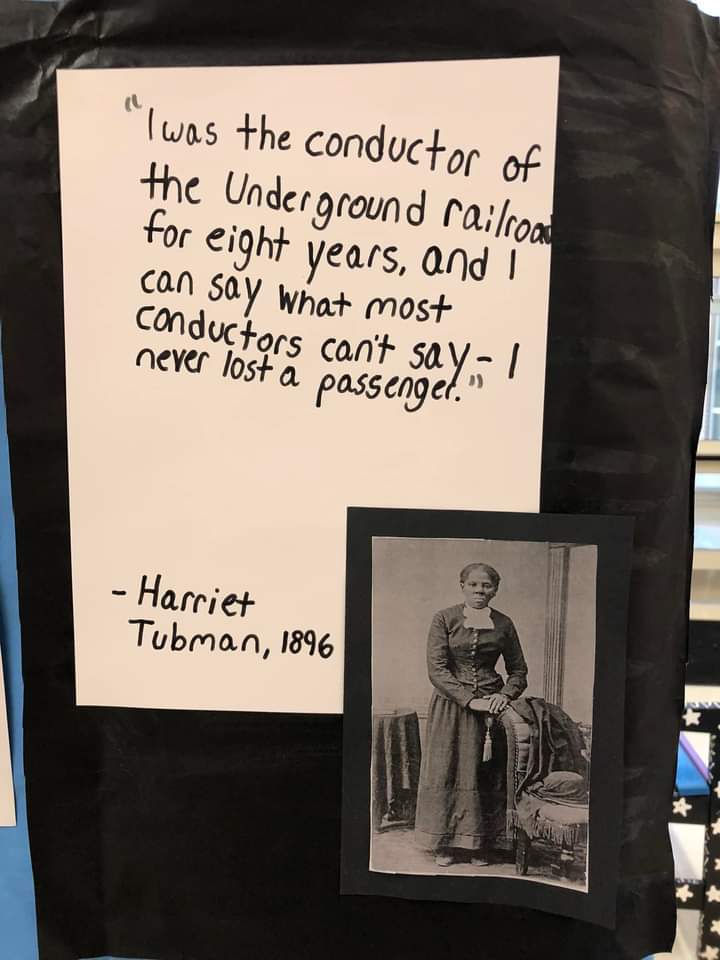 "I was the conductor of
the Underground railroad
for eight years, and I
can say what most
conductors can't say - I
never lost a passenger."
- Harriet
Tubman, 1896